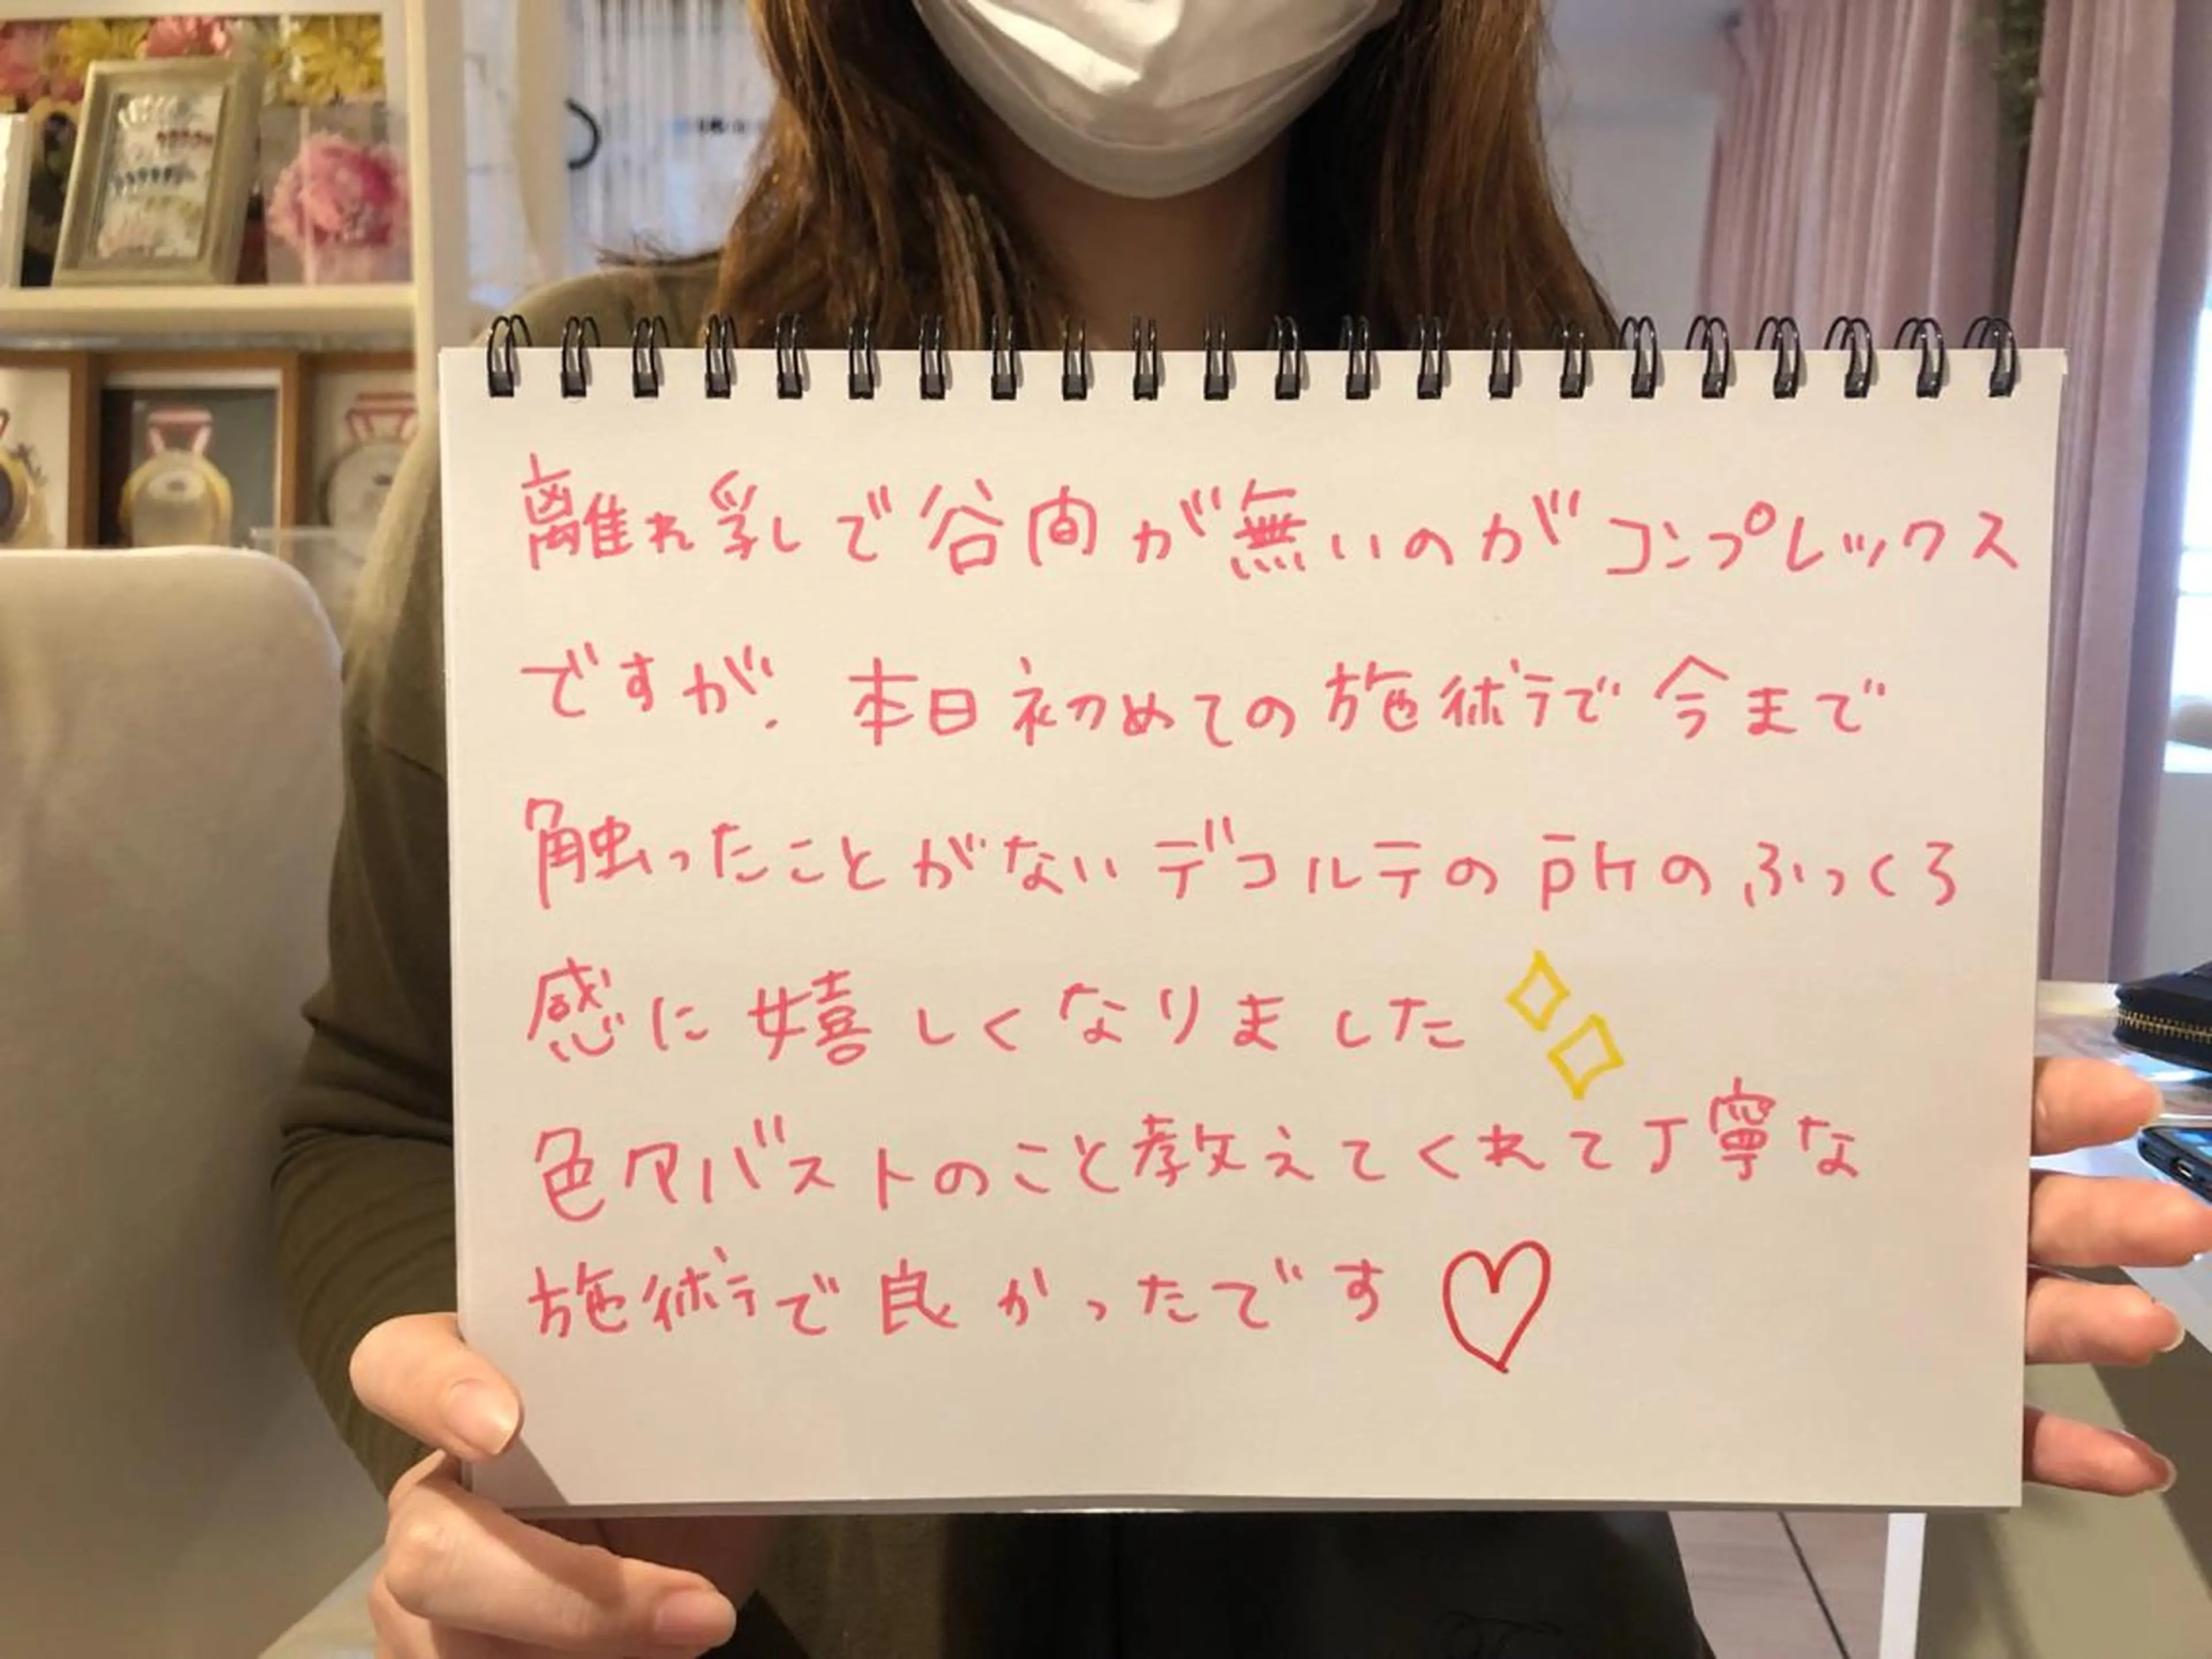 離れ乳で谷間が無いのがコンプレックス
ですが、本日初めての施術で今まで
触ったことがないデコルテの部のふっくら
感に嬉しくなりました
色々バストのこと教えてくれて丁寧な
施術で良かったです